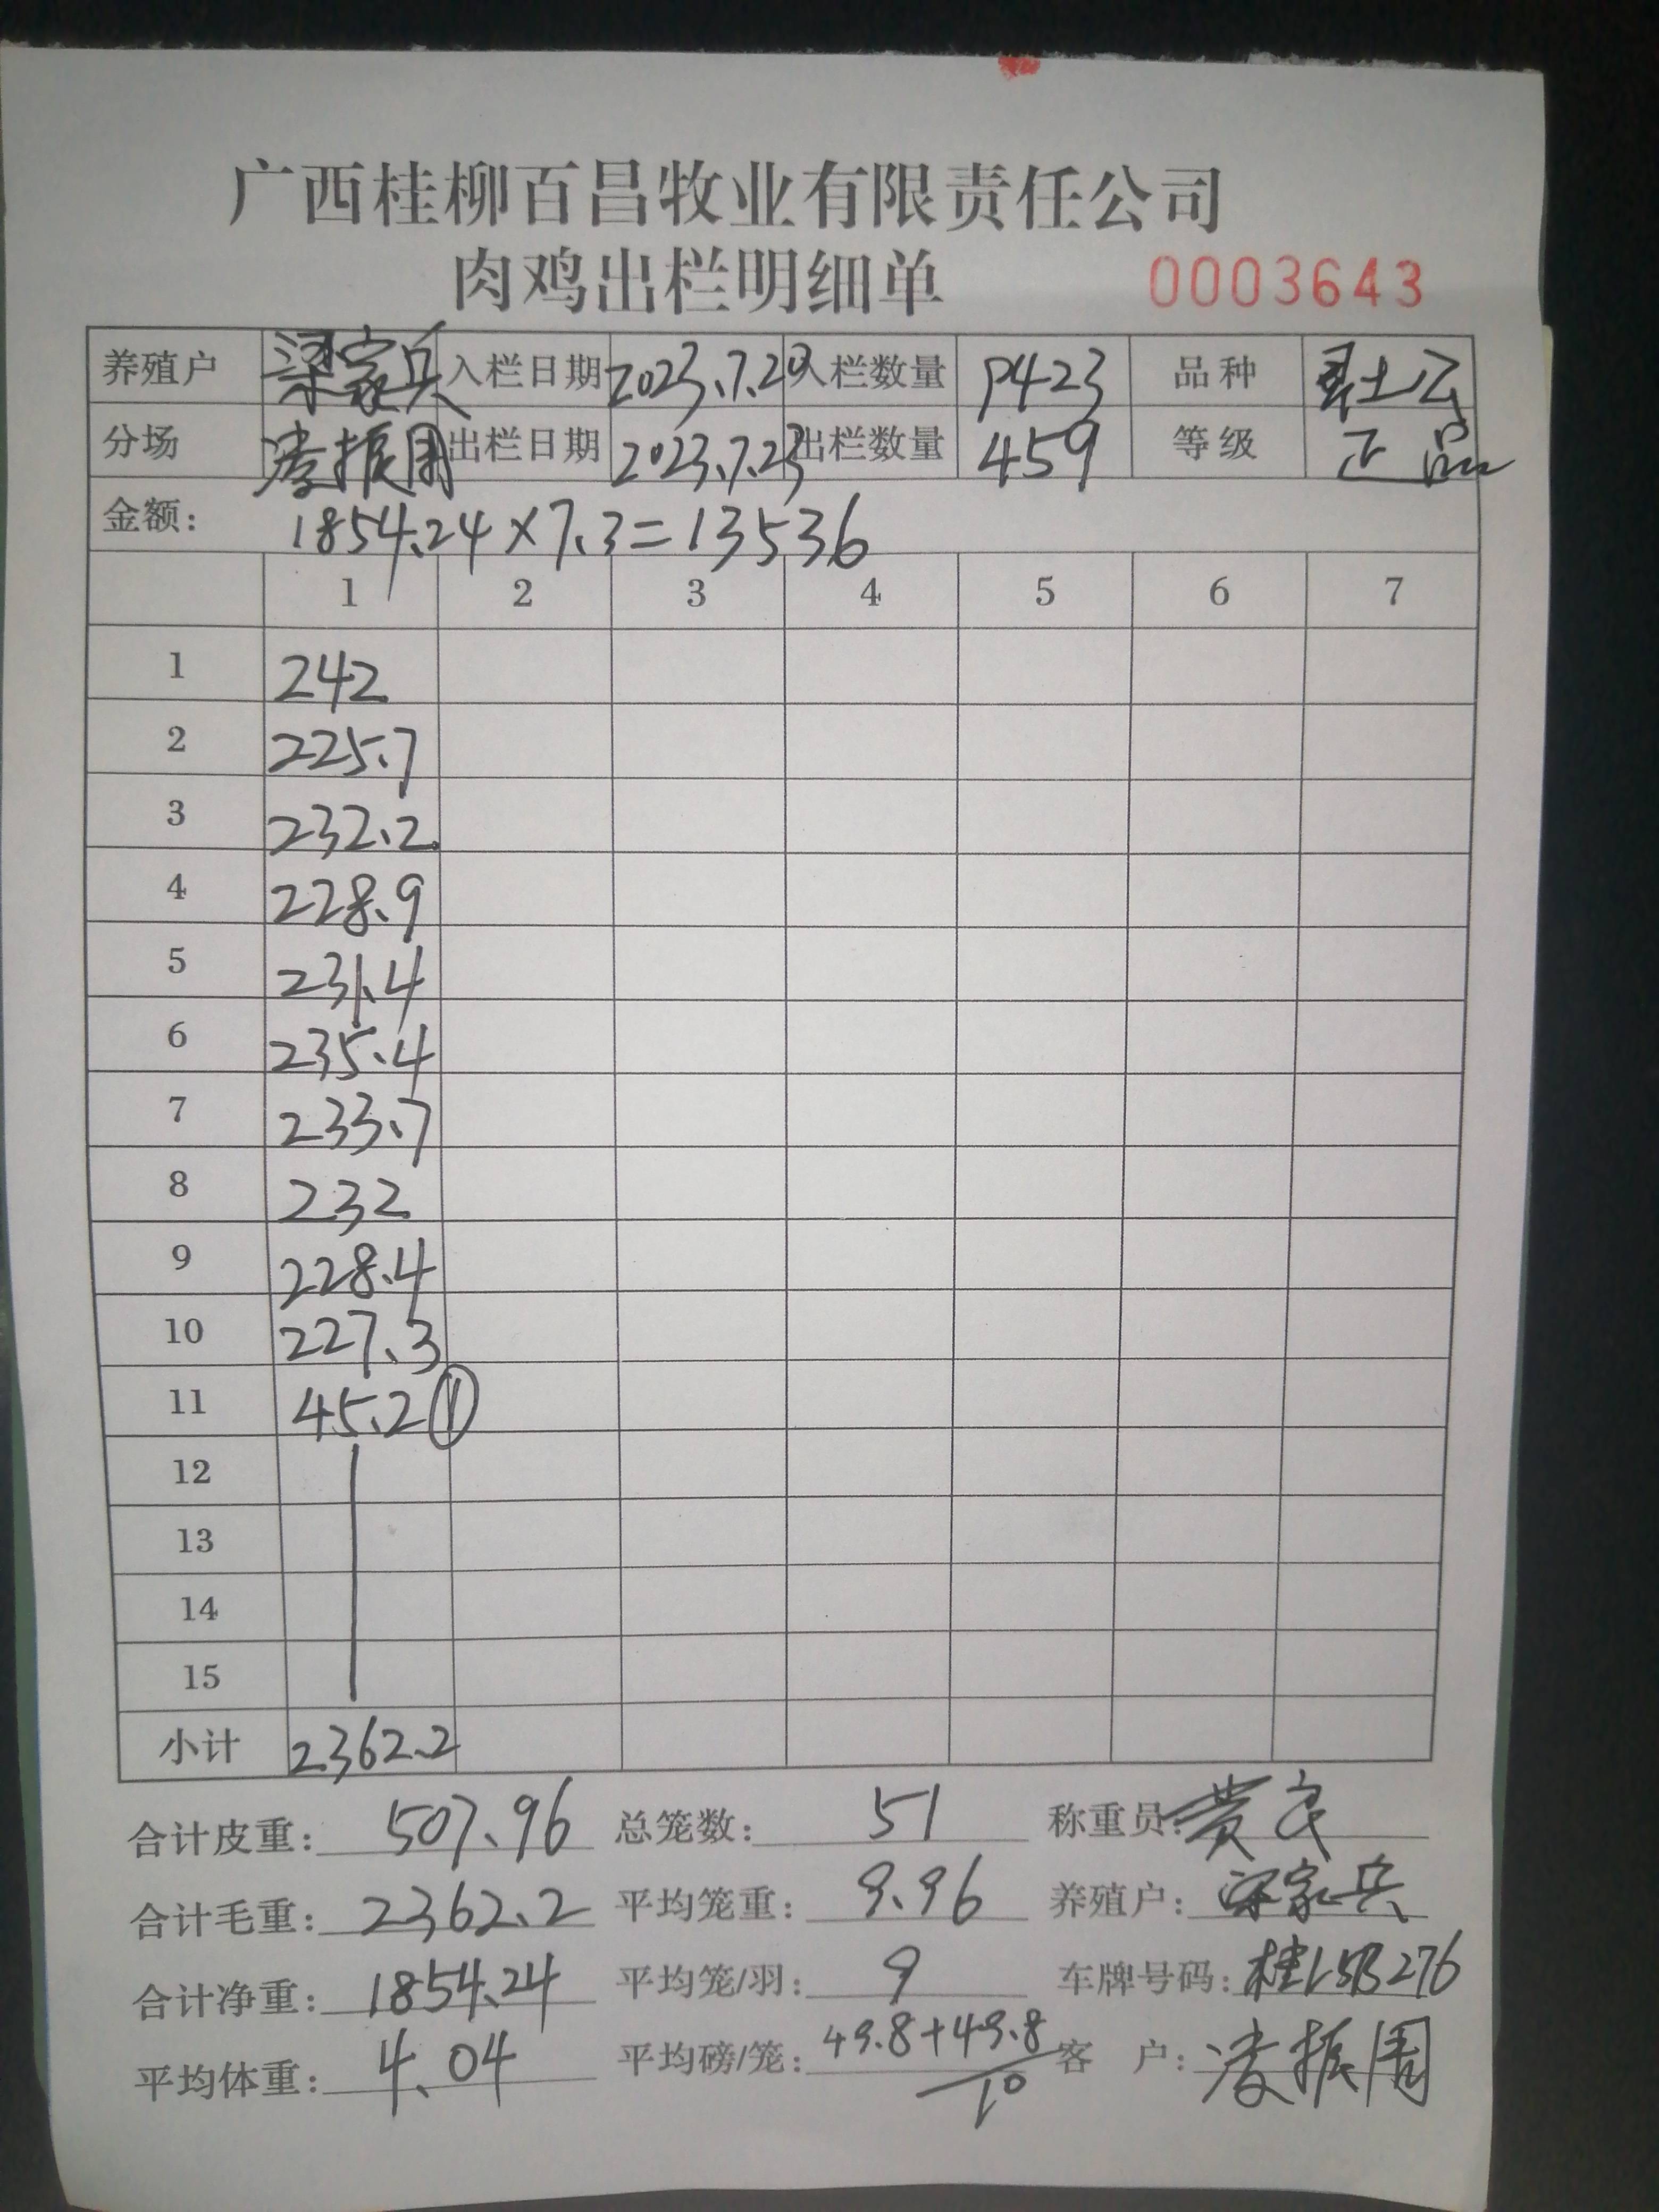 广西桂柳百昌牧业有限责任公司
肉鸡出栏明细单 0003643
养殖户 梁家兵 入栏日期 2023.7.20 入栏数量 P423 品种 土2
分场 凌振周 出栏日期 2023.7.23 出栏数量 459 等级 正品
金额: 1854.24×7.3=13536
1 2 3 4 5 6 7
1 242
2 225.7
3 232.2
4 228.9
5 231.4
6 235.4
7 233.7
8 232
9 228.4
10 227.3
11 45.2 ①
12
13
14
15
小计 2362.2
合计皮重: 507.96 总笼数: 51 称重员:
合计毛重: 2362.2 平均笼重: 9.96 养殖户: 梁家兵
合计净重: 1854.24 平均笼/羽: 9 车牌号码:
平均体重: 4.04 平均磅/笼: 49.8+49.8/10 客户: 凌振周